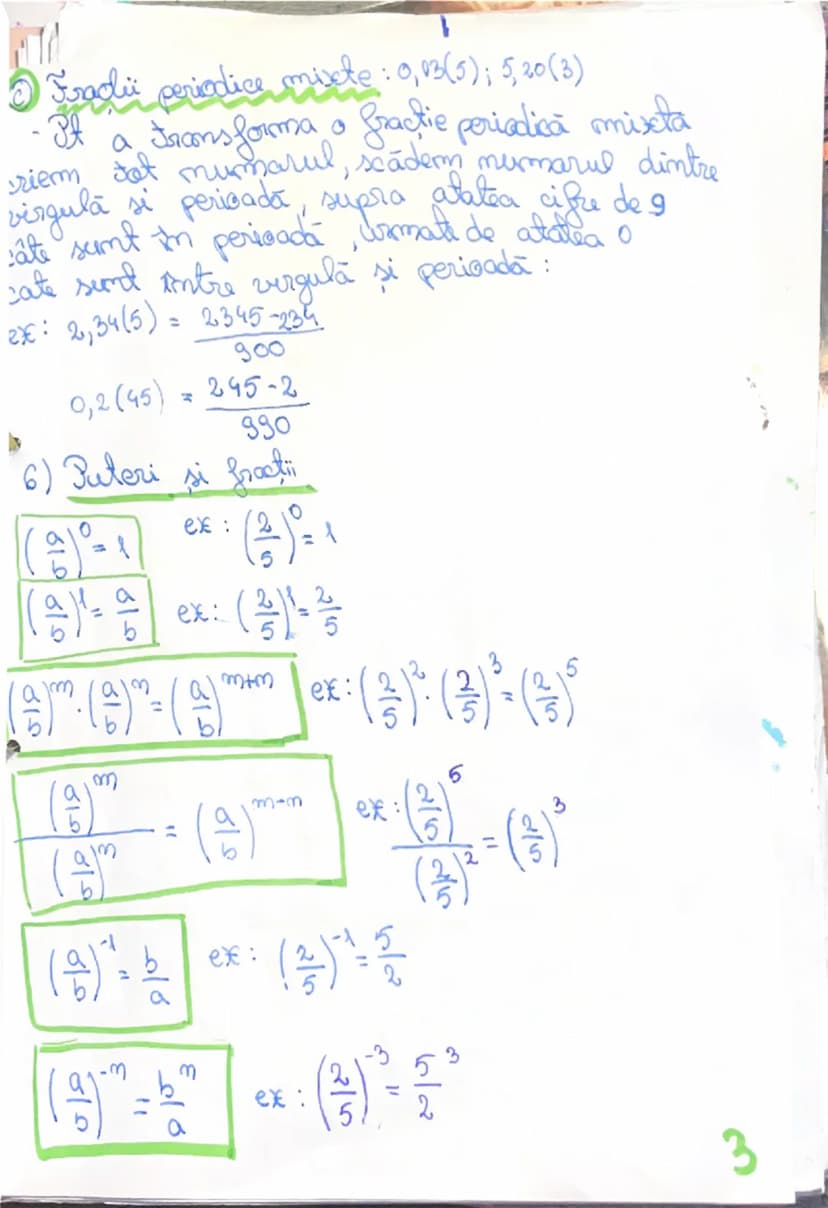 c) Fracții periodice mixte : 0,03(5) ; 5,20(3)
- Pt a transforma o fracție periodică mixtă
criem tot numarul, scădem numarul dintre
virgulă si perioadă, supra atatea cifre de 9
câte sunt în perioadă, urmate de atatea 0
cate sunt între virgulă și perioadă :
ex: 2,34(5) = (2345-234)/900
0,2(45) = (245-2)/990
6) Puteri și fracții
(a/b)^0 = 1 ex : (2/5)^0 = 1
(a/b)^1 = a/b ex: (2/5)^1 = 2/5
(a/b)^m · (a/b)^n = (a/b)^(m+n) ex : (2/5)^2 · (2/5)^3 = (2/5)^5
(a/b)^m / (a/b)^n = (a/b)^(m-n) ex : (2/5)^5 / (2/5)^2 = (2/5)^3
(a/b)^-1 = b/a ex : (2/5)^-1 = 5/2
(a/b)^-n = b^n/a ex : (2/5)^-3 = 5^3/2
3